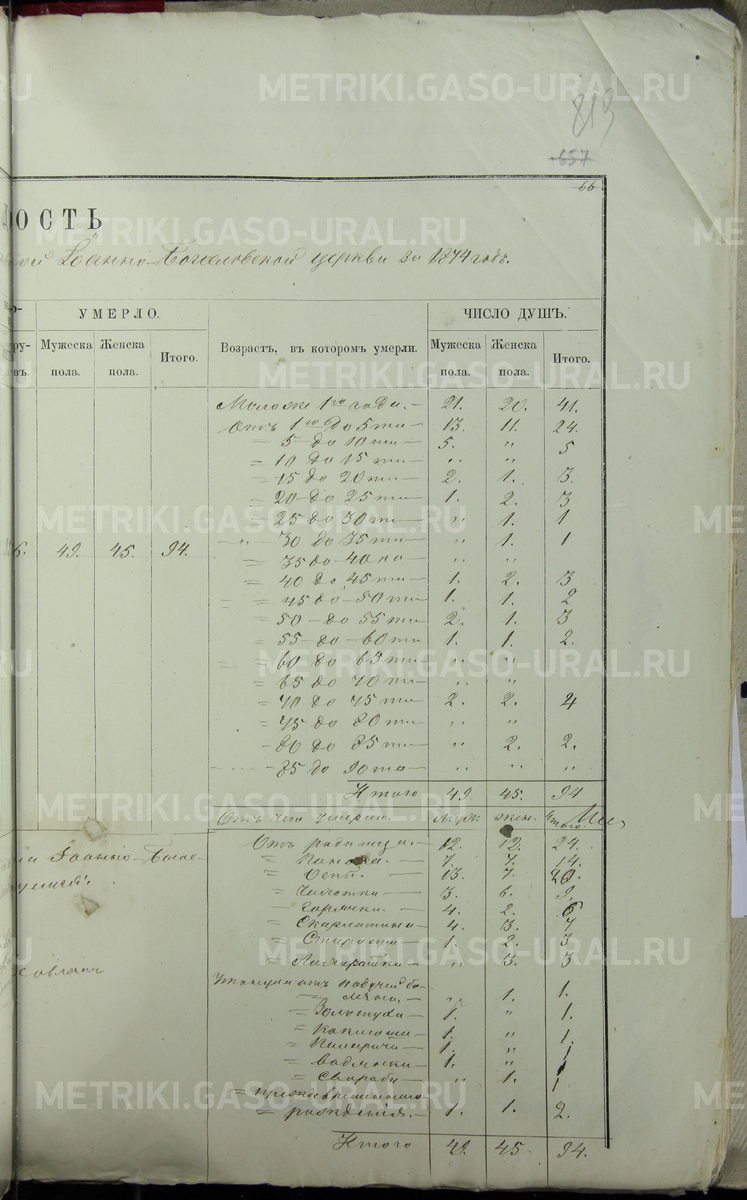 METRIKI.GASO-URAL.RU
813
657
66
ОСТЬ
Іоанно-Богословской церкви за 1874 годъ.
УМЕРЛО. ЧИСЛО ДУШЪ.
Мужеска пола. Женска пола. Итого. Возрастъ, въ которомъ умерли. Мужеска пола. Женска пола. Итого.
Моложе 1го года. 21. 20. 41.
Отъ 1го до 5ти 13. 11. 24.
= 5 до 10ти 5. " 5
= 10 до 15ти " "
= 15 до 20ти 2. 1. 3.
= 20 до 25ти 1. 2. 3
= 25 до 30ти " 1. 1
49. 45. 94. " 30 до 35ти " 1. 1
= 35 до 40ка " "
= 40 до 45ти 1. 2. 3
= 45 до 50ти 1. 1. 2
= 50 до 55ти 2. 1. 3
= 55 до 60ти 1. 1. 2.
= 60 до 65ти " "
= 65 до 70ти " "
= 70 до 75ти 2. 2. 4
= 75 до 80ти " "
80 до 85ти " 2. 2.
85 до 90та " " "
Итого 49. 45. 94
Отъ чего умерли. Муж. жен. Итого.
Отъ родимца. 12. 12. 24.
= Поноса. 7. 7. 14.
= Оспы. 13. 7. 20.
= Чахотки 3. 6. 9.
Горячки. 4. 2. 6
= Скарлатины 4. 3. 7
= Старости 1. 2. 3
= Лихорадки " 3. 3
отъ падучей бо-
лезни. " 1. 1.
= Золотухи 1. " 1.
= 1. " 1.
= 1. " 1
= водянки 1. " 1
= " 1. 1
= преждевременнаго
= рожденія. 1. 1. 2.
Итого 49. 45. 94.
Іоанно-Бого-